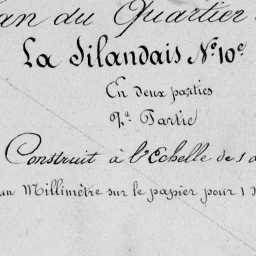 an du Quartier
La Silandais N.º 10.e
En deux parties
2.e Partie
Construit à l'Echelle de 1 a
un Millimètre sur le papier pour 1